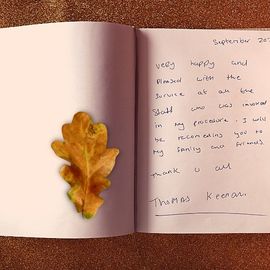 September 202
very happy and
Pleased with the
Service at all the
Staff who was involved
in my procedure. I will
be recomending you to
my family and friends.
Thank u all
Thomas Keenan.